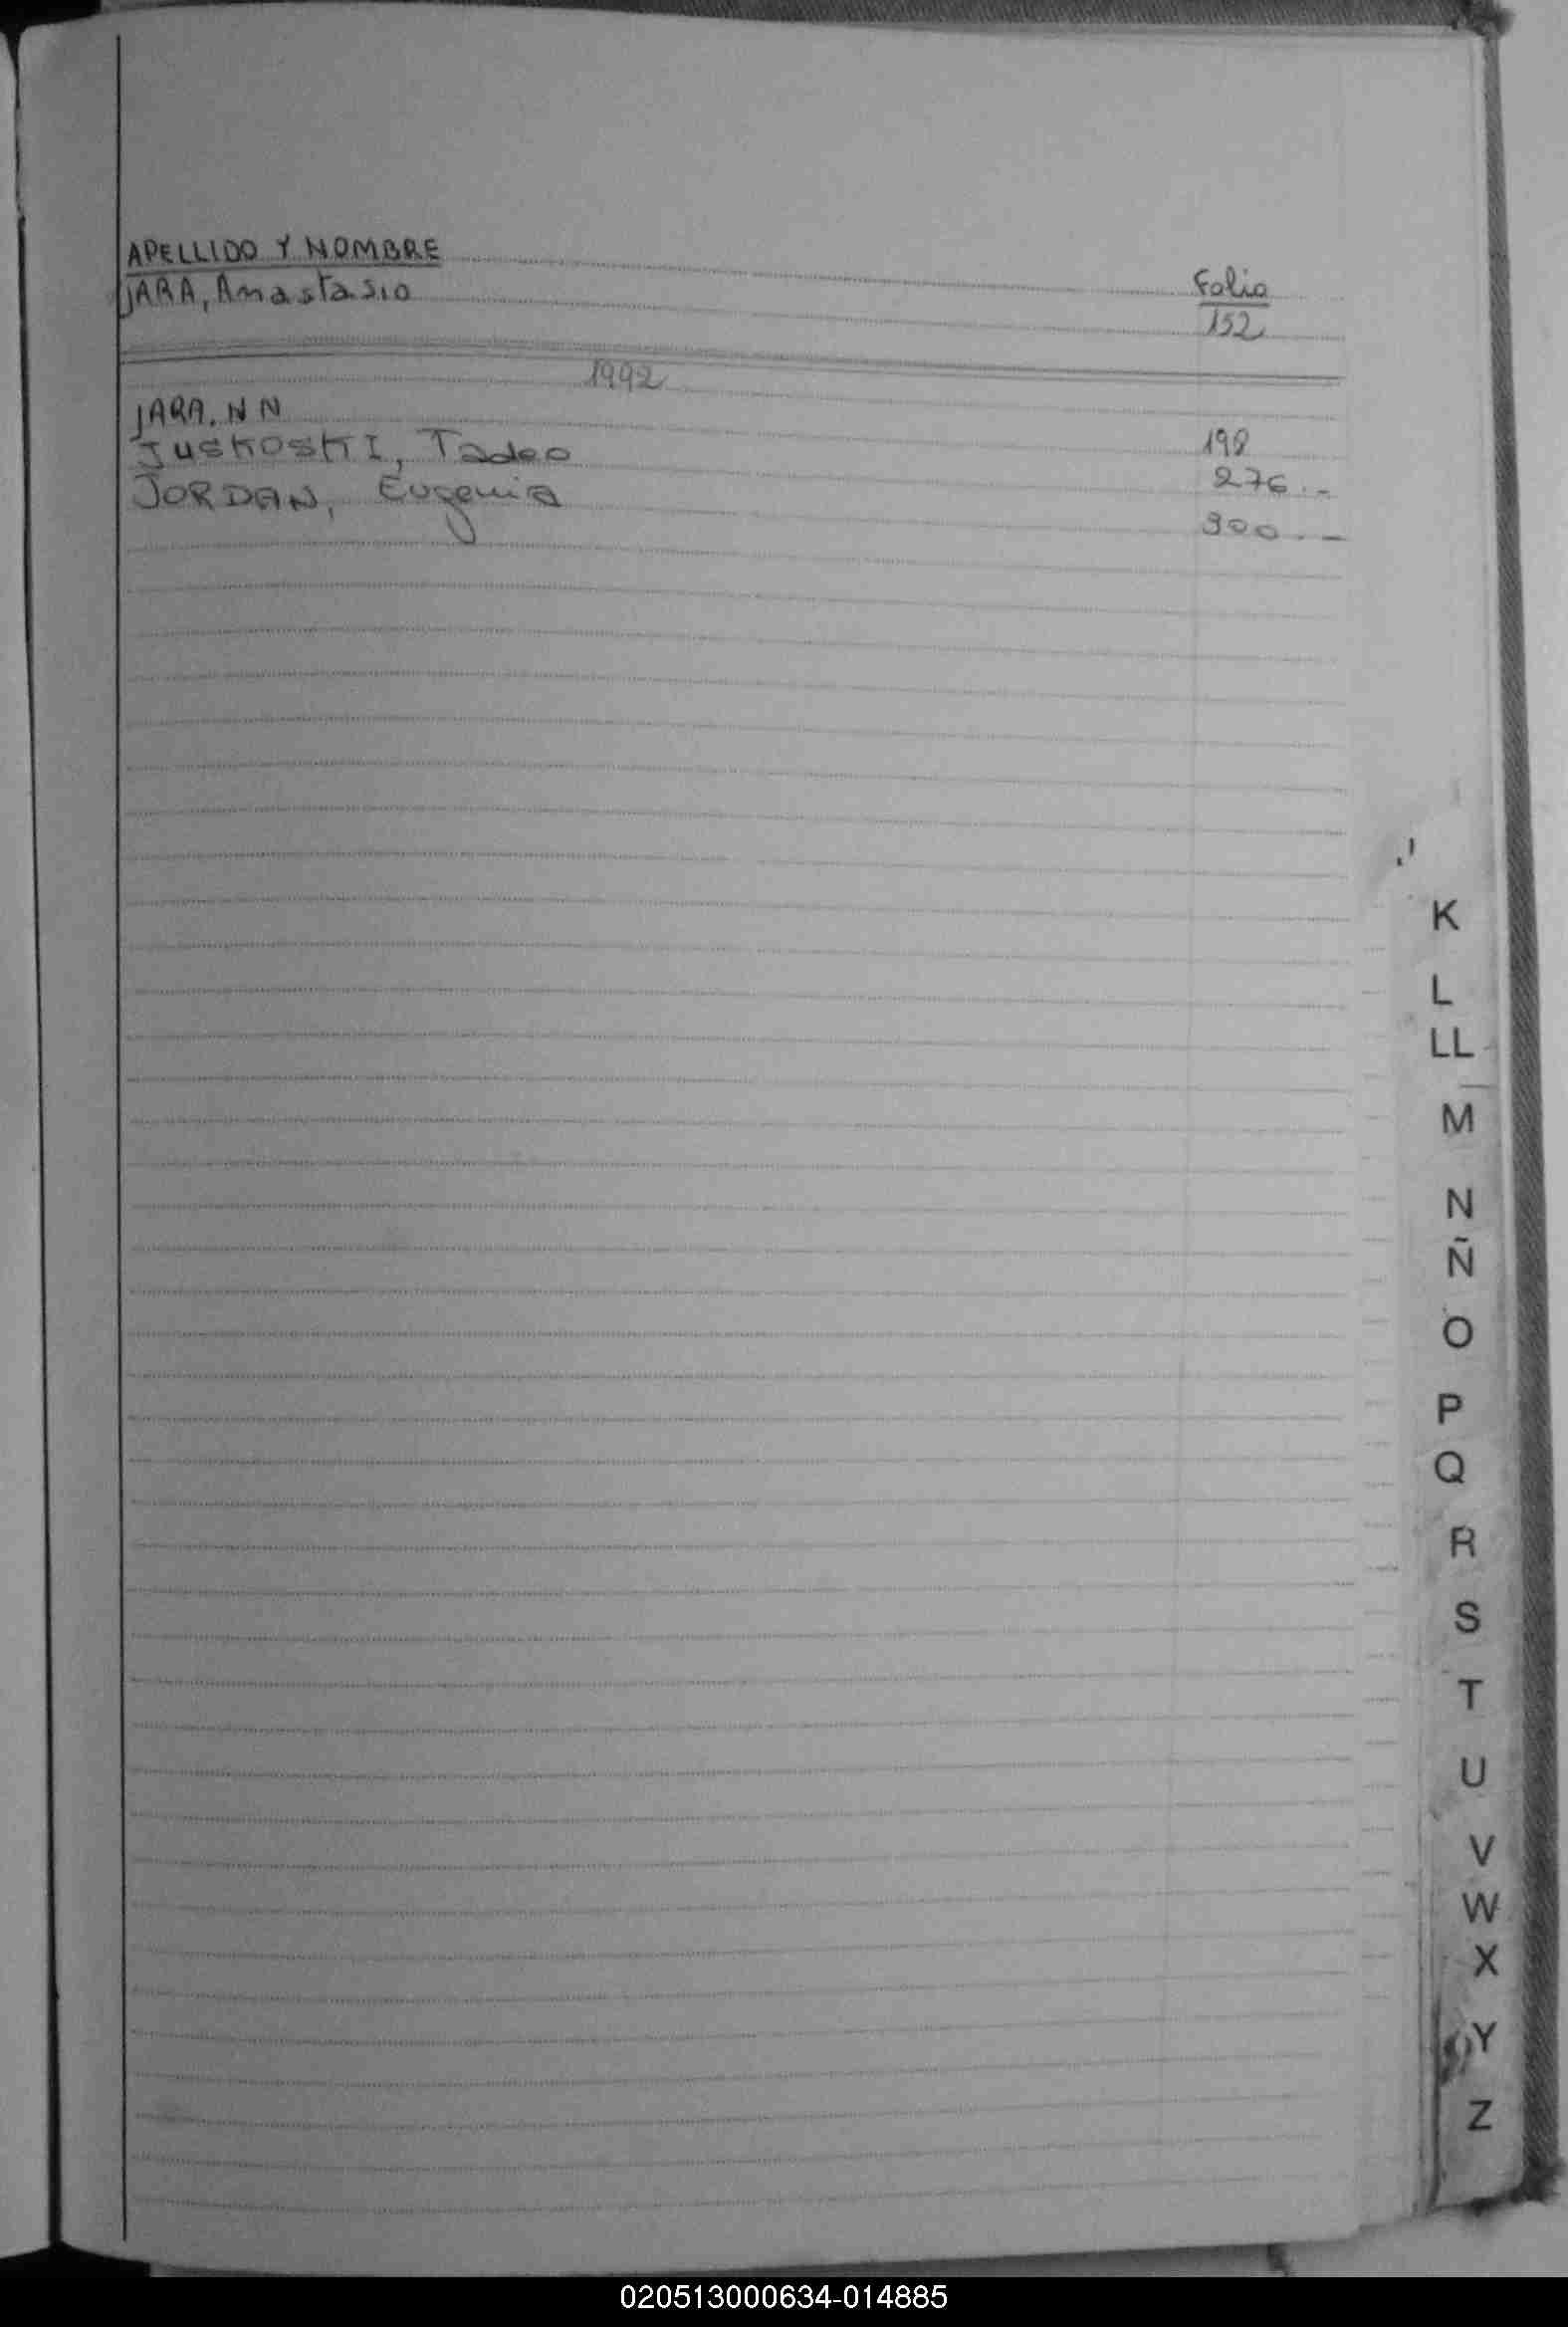 APELLIDO Y NOMBRE Folio
JARA, Anastasio 152
1992
JARA, N N 198
JUSKOSKI, Tadeo 276.-
JORDAN, Eugenia 300.-
K
L
LL
M
N
Ñ
O
P
Q
R
S
T
U
V
W
X
Y
Z
020513000634-014885